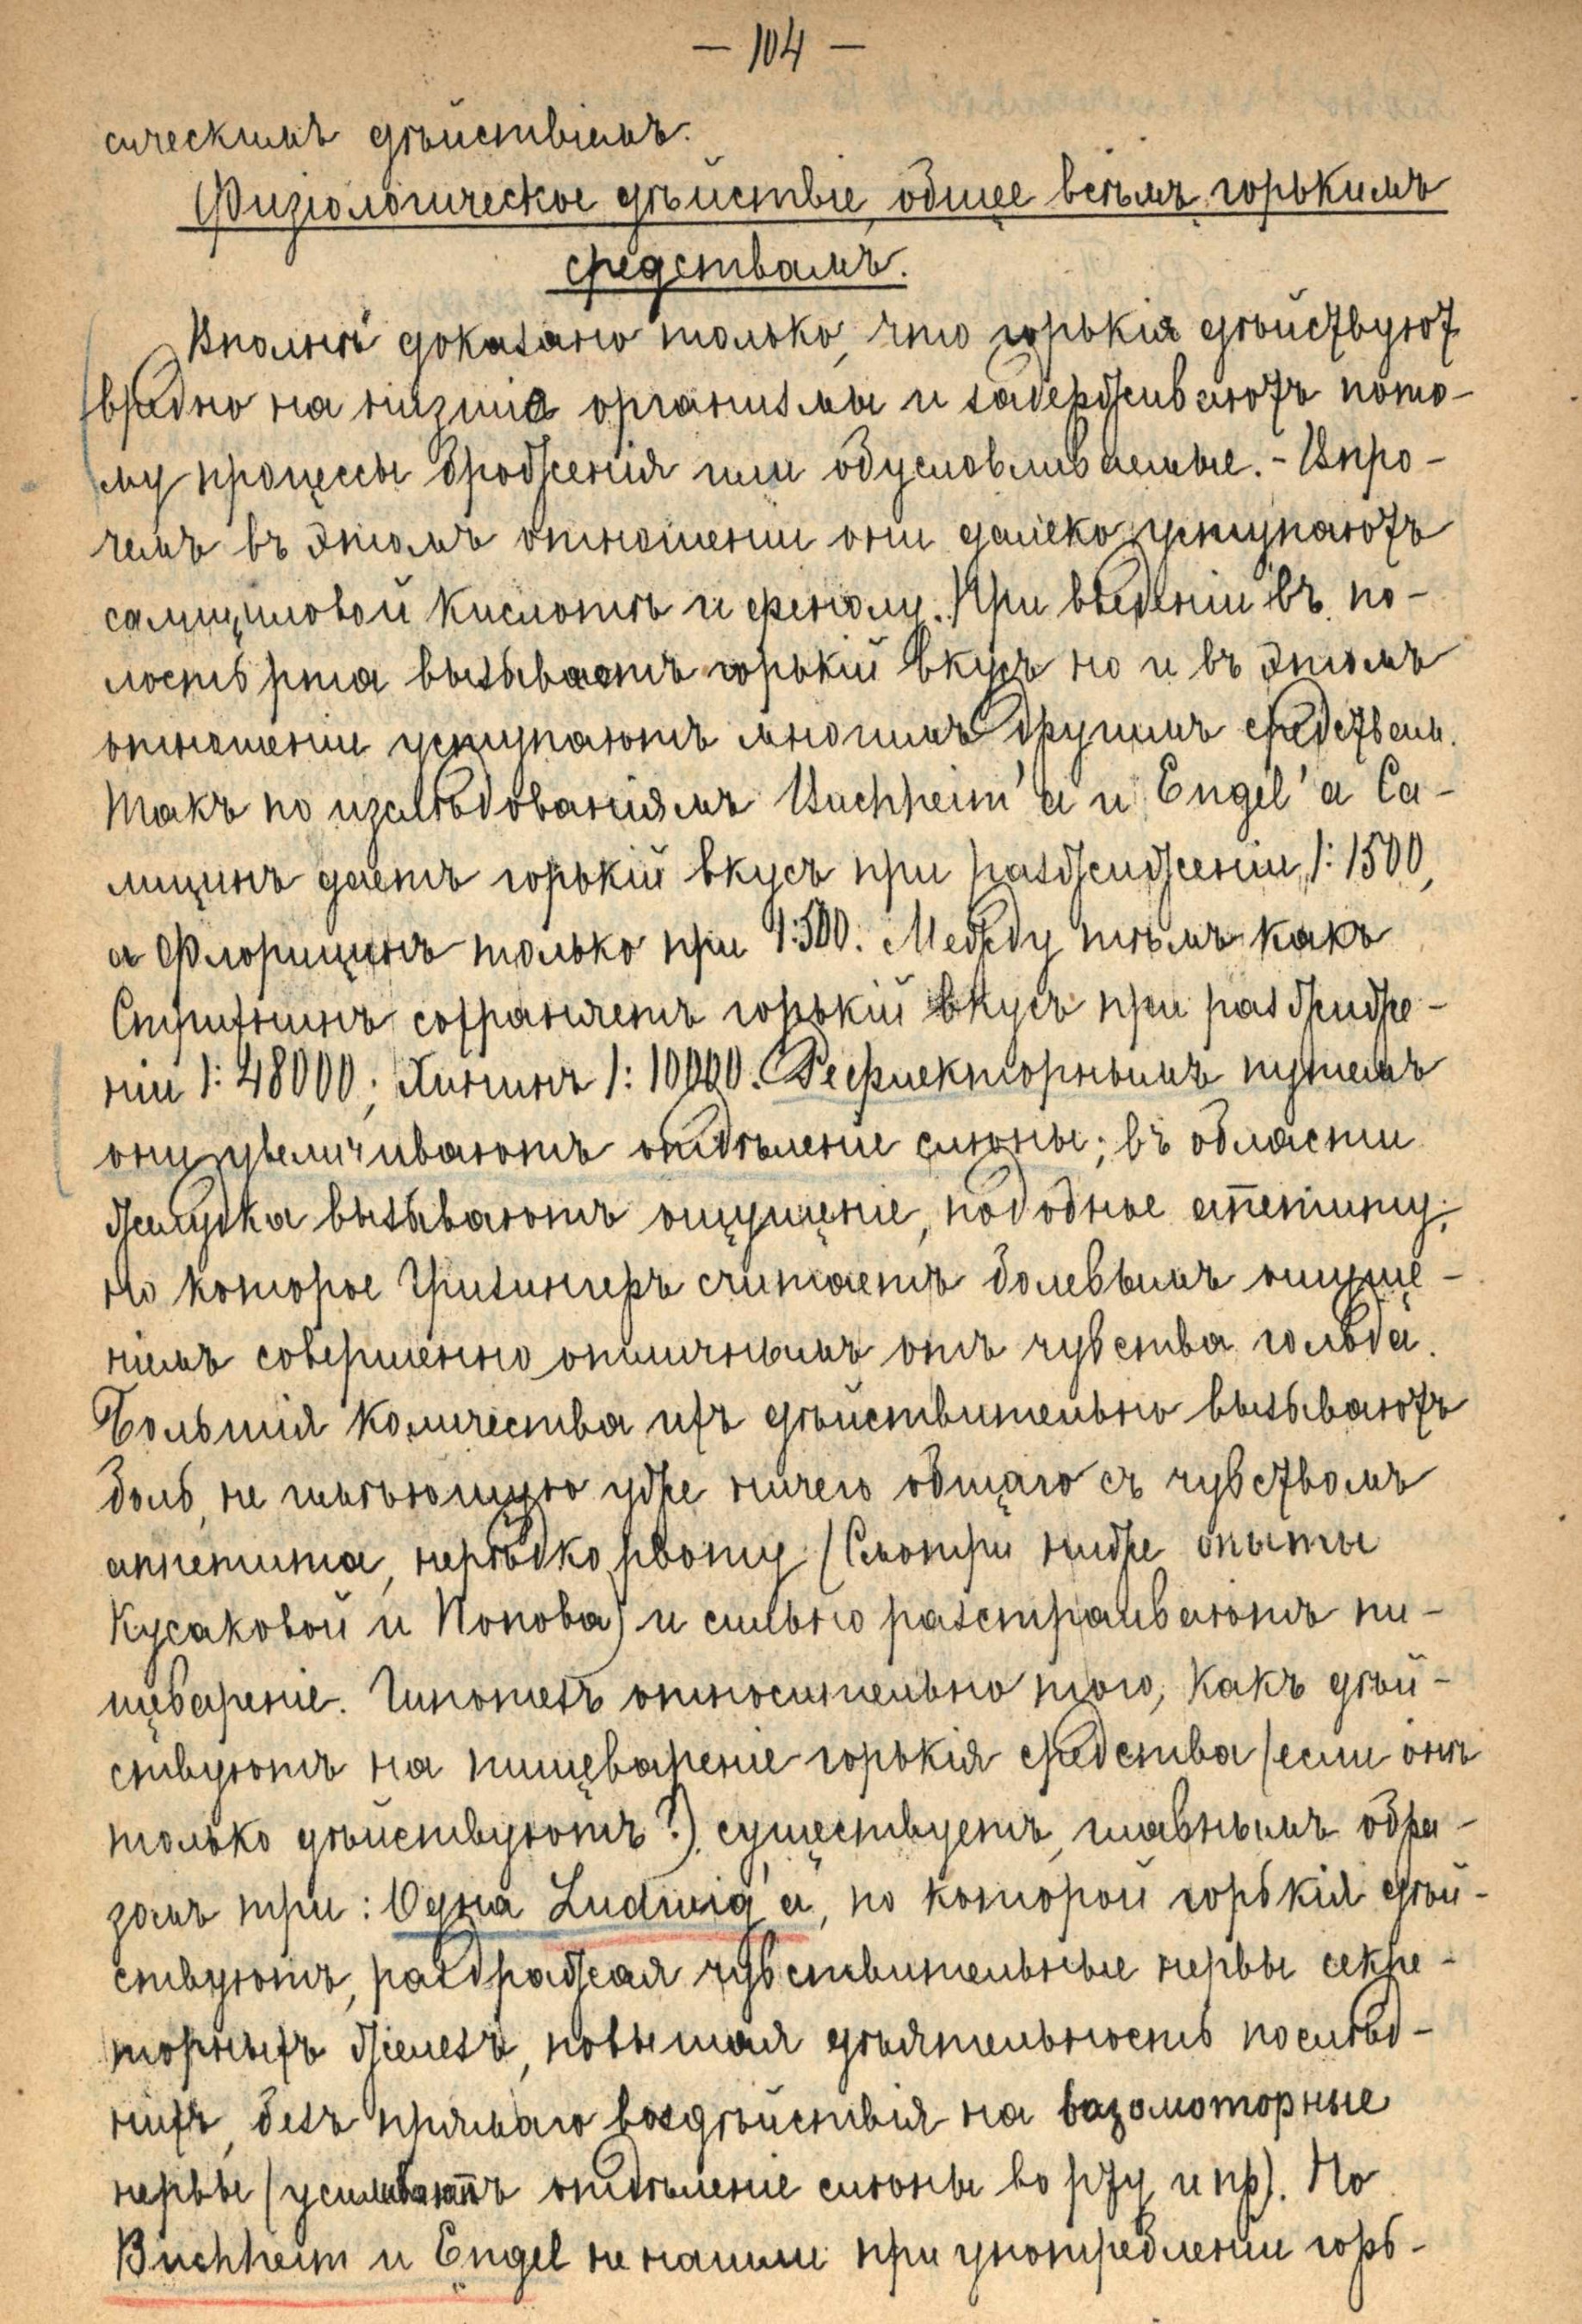 — 104 —
сическимъ дѣйствіемъ.
Физіологическое дѣйствіе, общее всѣмъ горькимъ
средствамъ.
Вполнѣ доказано только, что горькія дѣйствуют
вредно на низшіе организмы и задерживаютъ пото-
му процессы броженія ими обусловливаемые. - Впро-
чемъ въ этомъ отношеніи они далеко уступаютъ
салициловой кислотѣ и фенолу. При введеніи въ по-
лость рта вызываютъ горькій вкусъ но и въ этомъ
отношеніи уступаютъ многимъ другимъ средствам.
Такъ по изслѣдованіямъ Buchheim'a и Engel'a Са-
лицинъ даетъ горькій вкусъ при разжиженіи 1:1500,
а Флорицинъ только при 1:500. Между тѣмъ какъ
Стрихнинъ сохраняетъ горькій вкусъ при разжиже-
ніи 1:48000; Хининъ 1:10000. Рефлекторнымъ путемъ
они увеличиваютъ отдѣленіе слюны; въ области
желудка вызываютъ ощущеніе, подобное аппетиту,
но которое Гризингеръ считаетъ болевымъ ощуще-
ніемъ совершенно отличнымъ отъ чувства голода.
Большія количества ихъ дѣйствительно вызываютъ
боль, не имѣющую уже ничего общаго съ чувствомъ
аппетита, нерѣдко рвоту (Смотри ниже опыты
Кусаковой и Попова) и сильно разстраиваютъ пи-
щевареніе. Гипотезъ относительно того, какъ дѣй-
ствуютъ на пищевареніе горькія средства (если онѣ
только дѣйствуютъ?) существуетъ, главнымъ обра-
зомъ три: Одна Ludwig'a, по которой горькія дѣй-
ствуютъ, раздражая чувствительные нервы секре-
торныхъ железъ, повышая дѣятельность послѣд-
нихъ, безъ прямаго воздѣйствія на вазомоторные
нервы (усиливаютъ отдѣленіе слюны во рту и пр). Но
Buchheim и Engel не нашли при употребленіи горь-